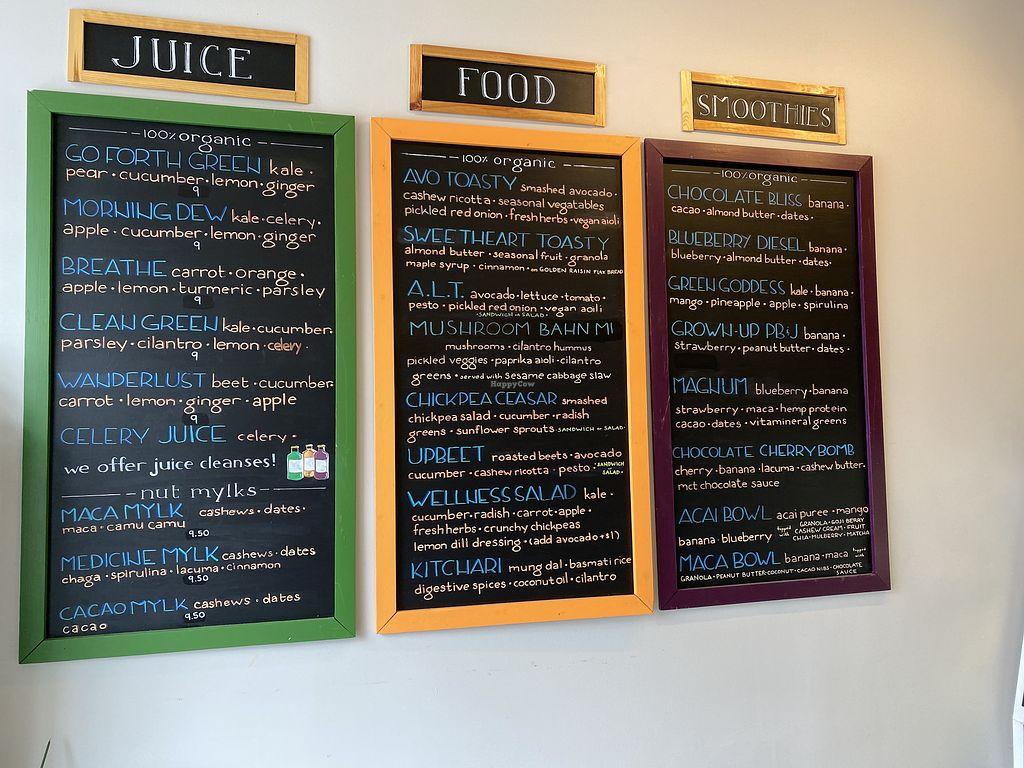 JUICE
100% organic
GO FORTH GREEN kale ·
pear · cucumber · lemon · ginger
9
MORNING DEW kale · celery ·
apple · cucumber · lemon · ginger
9
BREATHE carrot · orange ·
apple · lemon · turmeric · parsley
9
CLEAN GREEN kale · cucumber
parsley · cilantro · lemon · celery ·
9
WANDERLUST beet · cucumber
carrot · lemon · ginger · apple
9
CELERY JUICE celery ·
we offer juice cleanses!
nut mylks
MACA MYLK cashews · dates ·
maca · camu camu
9.50
MEDICINE MYLK cashews · dates
chaga · spirulina · lacuma · cinnamon
9.50
CACAO MYLK cashews · dates
cacao
9.50
FOOD
100% organic
AVO TOASTY smashed avocado ·
cashew ricotta · seasonal vegatables
pickled red onion · fresh herbs · vegan aioli
SWEETHEART TOASTY
almond butter · seasonal fruit · granola
maple syrup · cinnamon · on GOLDEN RAISIN FLAX BREAD
A.L.T. avocado · lettuce · tomato ·
pesto · pickled red onion · vegan aoili
· SANDWICH or SALAD ·
MUSHROOM BAHN MI
mushrooms · cilantro hummus
pickled veggies · paprika aioli · cilantro
greens · served with sesame cabbage slaw
HappyCow
CHICKPEA CEASAR smashed
chickpea salad · cucumber · radish
greens · sunflower sprouts · SANDWICH or SALAD ·
UPBEET roasted beets · avocado
cucumber · cashew ricotta · pesto · SANDWICH or SALAD ·
WELLNESS SALAD kale ·
cucumber · radish · carrot · apple ·
fresh herbs · crunchy chickpeas
lemon dill dressing · (add avocado + $1)
KITCHARI mung dal · basmati rice
digestive spices · coconut oil · cilantro
SMOOTHIES
100% organic
CHOCOLATE BLISS banana ·
cacao · almond butter · dates ·
BLUEBERRY DIESEL banana ·
blueberry · almond butter · dates ·
GREEN GODDESS kale · banana ·
mango · pineapple · apple · spirulina
GROWN-UP PB+J banana ·
strawberry · peanut butter · dates ·
MAGNUM blueberry · banana
strawberry · maca · hemp protein
cacao · dates · vitamineral greens
CHOCOLATE CHERRY BOMB
cherry · banana · lacuma · cashew butter ·
mct chocolate sauce
ACAI BOWL acai puree · mango
banana · blueberry topped with GRANOLA · GOJI BERRY
CASHEW CREAM · FRUIT
CHIA · MULBERRY · MATCHA
MACA BOWL banana · maca topped with
GRANOLA · PEANUT BUTTER · COCONUT · CACAO NIBS · CHOCOLATE
SAUCE